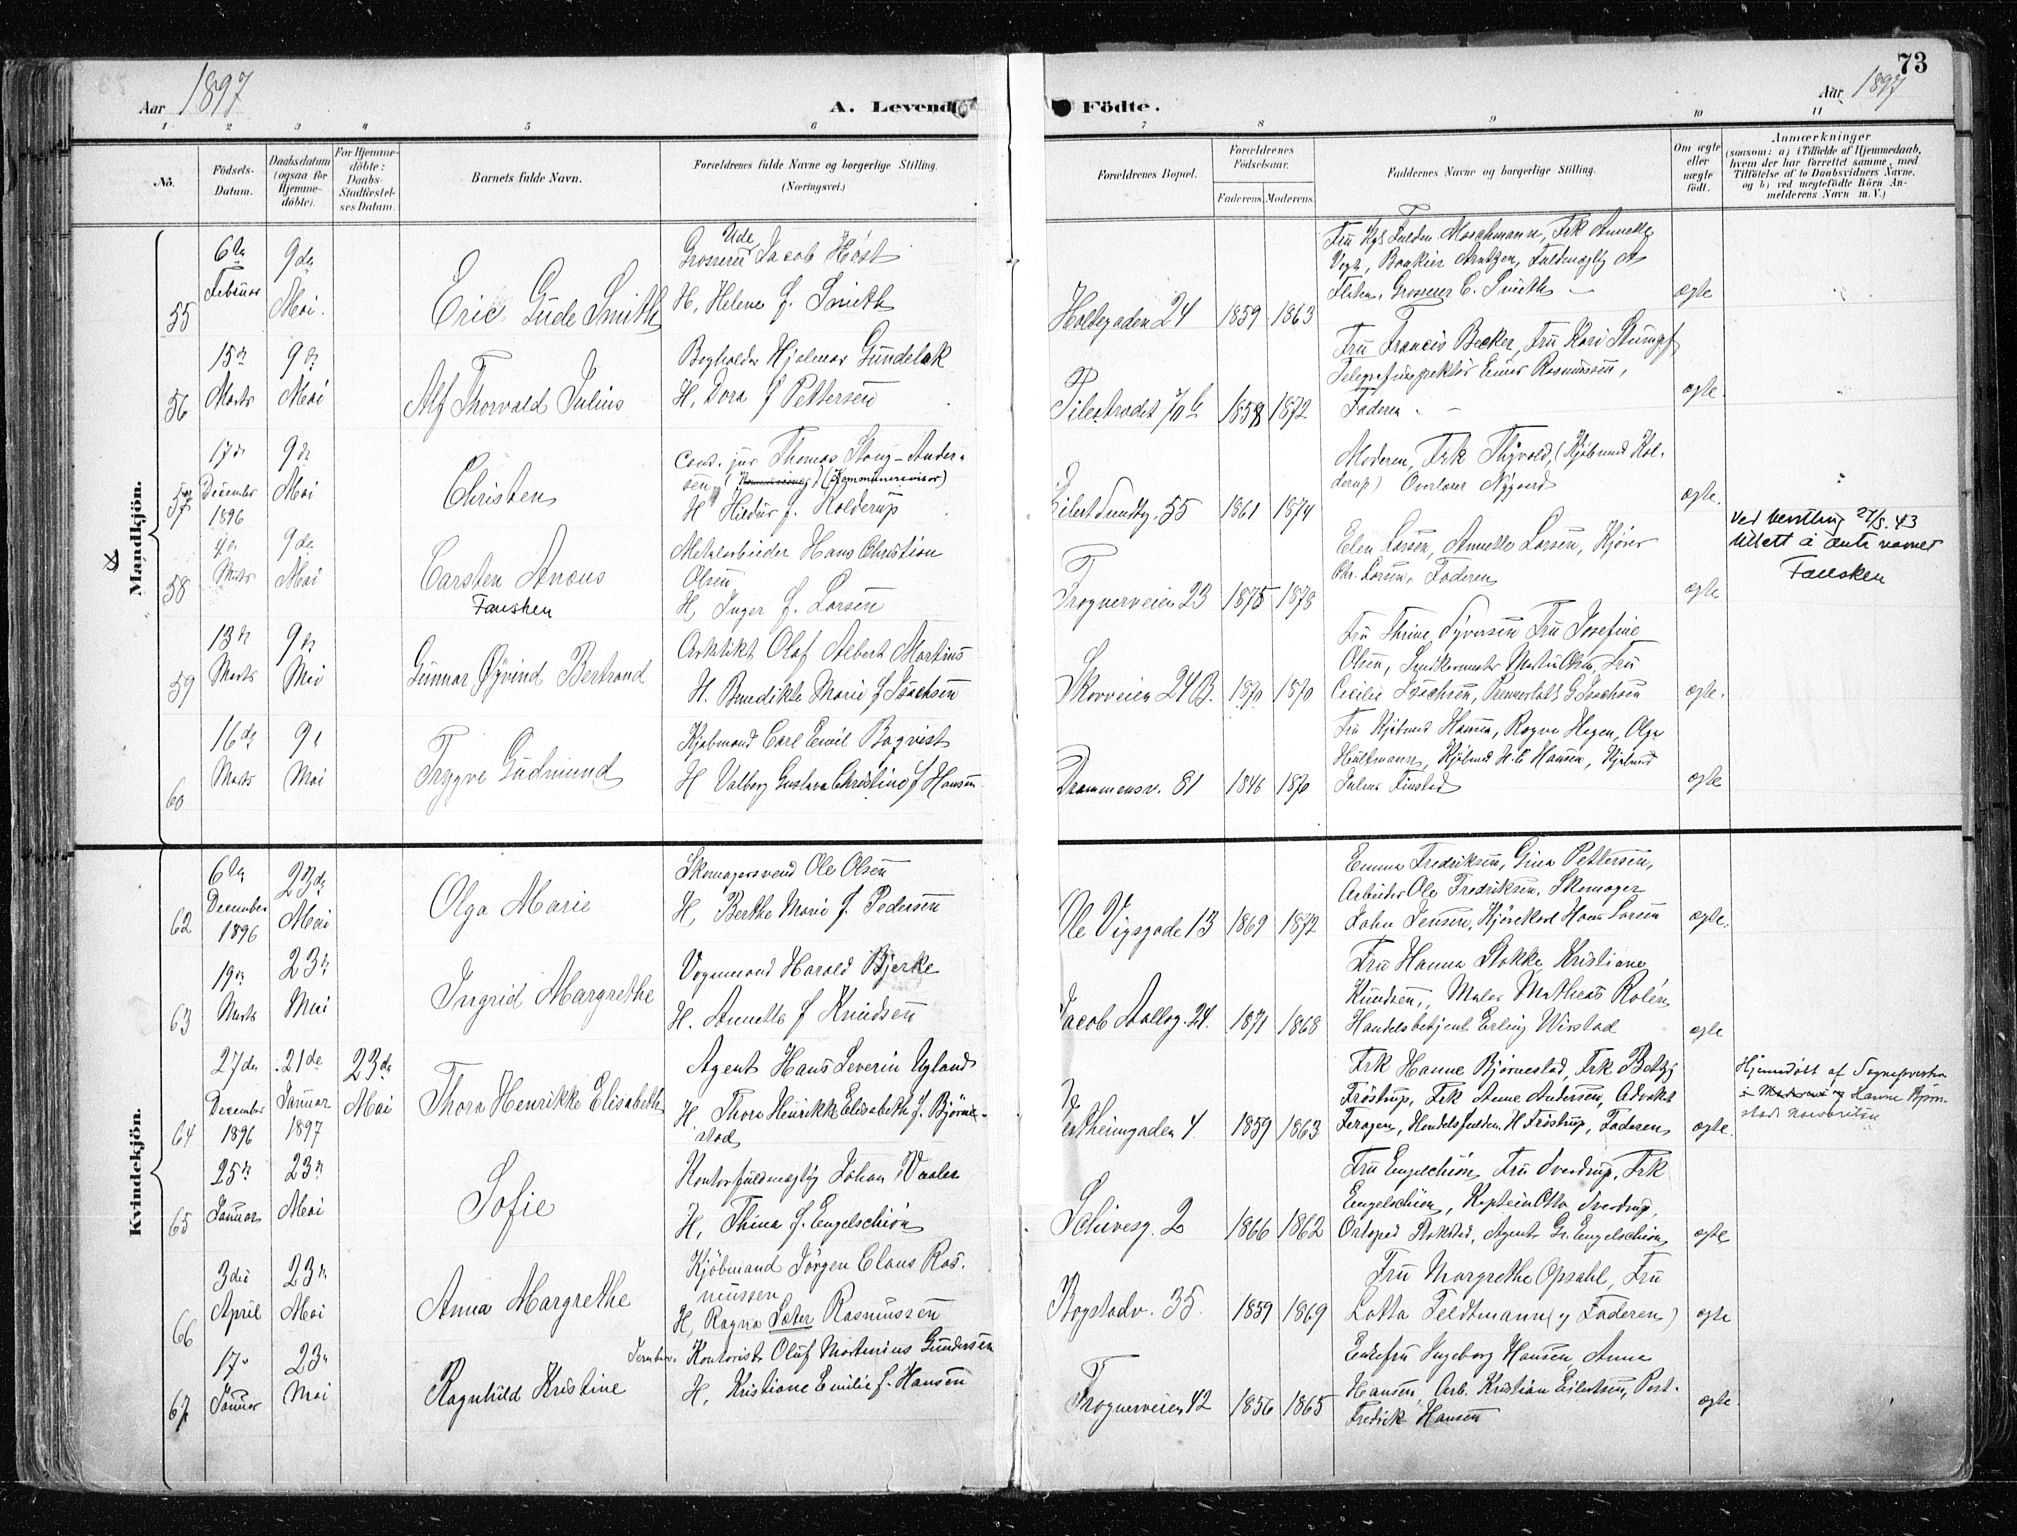 73
Aar 1897
A. Levende
Födte.
Aar 1897
1 2 3 4 5 6 7 8 9 10 11
No.
Födsels-
Datum.
Daabsdatum
(ogsaa for
Hjemme-
döbte).
For Hjemme-
döbte:
Daabs-
Stadfæstel-
ses Datum.
Barnets fulde Navn.
Forældrenes fulde Navne og borgerlige Stilling.
(Næringsvei.)
Forældrenes Bopæl.
Forældrenes
Födselsaar.
Faderens. Moderens.
Faddernes Navne og borgerlige Stilling.
Om ægte
eller
uægte
födt.
Anmærkninger
(saasom: a) i Tilfælde af Hjemmedaab,
hvem der har forrettet samme, med
Tilföielse af to Daabsvidners Navne,
og b) ved uægtefödte Börn An-
melderens Navn m. V.)
Mandkjön.
55
6te
Februar
9de
Mai.
Eric Gude Smith
Grosserer Jacob Høst
H, Helene f. Smith
Holtegaden 24
1859 1863
Grosserer C. Smith
ægte
56
15de
Marts
9de
Mai
Alf Thorvald Julius
Bogholder Hjalmar Gundelak
H, Dora f Pettersen
Pilestrædet 70 b
1858 1872
Fru Francis Becker, Fru Kari Stumpf
Telegrafinspektør Einar Rasmussen,
Faderen
ægte
57
17de
December
1896
9de
Mai
Christen
Cand. jur Thomas Stang-Ander-
sen (Kommunerevisor)
H Hildur f. Kolderup
Eilert Sundtsg. 55
1861 1874
Moderen, Frk Thyvold, (Kjøbmand Kol-
derup) Overlærer Nygaard
ægte.
58
4de
Marts
9de
Mai
Carsten Anæus
Fausken
Metalarbeider Hans Christian
Olsen
H, Inger f. Larsen
Frognerveien 23
1875 1878
Elen Larsen, Annette Larsen, Kjører
Chr. Larsen, Faderen
ægte
Ved bevilling 27/5.43
tillatt å anta navnet
Fausken
59
13de
Marts
9de
Mai
Gunnar Øyvind Bertrand
Arkitekt Olaf Albert Martins
H. Benedikte Marie f Isachsen
Skovveien 24 B.
1870 1870
Fru Thrine Syversen Fru Josefine
Olsen, Snedkermester Martin Olsen, Fru
Cecilie Isachsen, Premierløit G Isachsen
ægte.
60
16de
Marts
9de
Mai
Trygve Gudmund
Kjøbmand Carl Emil Bogvist
H Valborg Gustava Christine f Hansen
Drammensv. 81
1846 1870
Fru Kjøbmd Hanna, Ragna Hagen, Olga
Hultmann, Kjøbmd H. C Hansen, Kjøbmd
Julius Finstad
ægte
Kvindekjön.
62
6te
December
1896
23de
Mai
Olga Marie
Skomagersvend Ole Olsen
H, Berthe Marie f. Pedersen
Ole Vigsgade 13
1869 1872
Emma Fredriksen, Gina Pettersen,
Arbeider Ole Fredriksen, Skomager
John Jensen, Kjørekarl Hans Larsen
ægte.
63
19de
Marts
23de
Mai
Ingrid Margrethe
Vognmand Harald Bjerke
H. Annette f Knudsen
Jacob Aallsg. 24.
1871 1868
Fru Hanna Stokke Kristiane
Knudsen, Maler Matheas Rolén
Handelsbetjent Erling Wirstad
ægte
64
27de
December
1896
21de
Januar
1897
23de
Mai
Thora Henrikke Elisabeth
Agent Hans Severin Ugland
H Thora Henrikke Elisabeth f. Bjørne-
stad
Vestheimgaden 4.
1859 1863
Frk Hanne Bjørnestad, Frk Betzy
Frøstrup, Frk Anne Andersen, Advokat
Feragen, Handelsfuldm. H Frøstrup, Faderen
ægte.
Hjemmedøbt af Sognepresten
65
25de
Januar
23de
Mai
Sofie
Kontorfuldmægtig Johan Vaaler
H, Thina f. Engelschiøn
Schivesg. 2
1866 1862
Fru Engelschiøn, Fru Sverdrup, Frk
Engelschiøn, Kaptein Otto Sverdrup,
Ortoped Stokstad, Agent Gr. Engelschiøn
ægte
66
3die
April
23de
Mai
Anna Margrethe
Kjøbmand Jørgen Claus Ras-
mussen
H, Ragna Sæter Rasmussen
Bogstadv. 35.
1859 1869
Fru Margrethe Opsahl, Fru
Lotta Feldtmann (og Faderen)
ægte
67
17de
Januar
23de
Mai
Ragnhild Kristine
Kontorist Oluf Martinius Gundersen
H, Kristiane Emilie f. Hansen
Frognerveien 42
1856 1865
Enkefru Ingeborg Hansen, Anna
Hansen, Arb. Kristian Eilertsen, Post-
Fredrik Hansen
ægte.